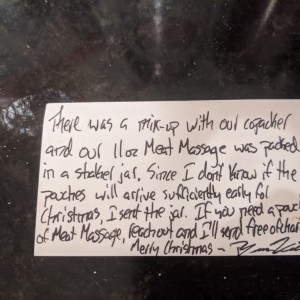 There was a mix-up with our copacker
and our 11oz Meat Massage was packed
in a shaker jar. Since I don't know if the
pouches will arrive sufficiently early for
Christmas, I sent the jar. If you need a pouch
of Meat Massage, reach out and I'll send free of char
Merry Christmas -